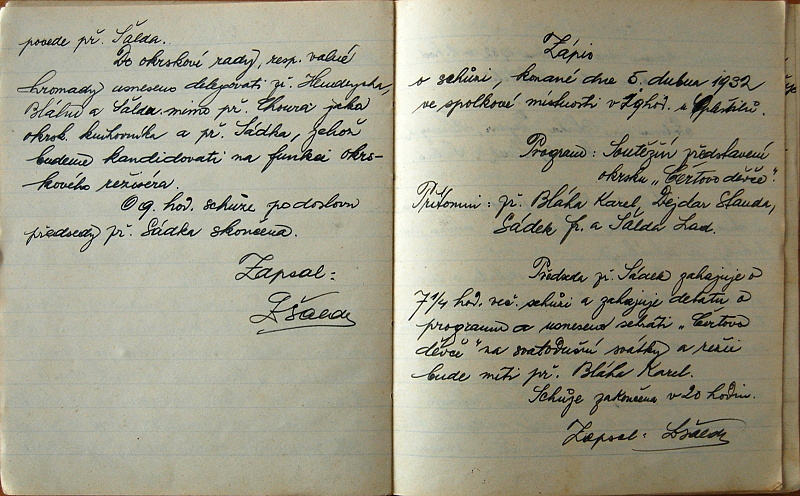 povede př. Šálda.
Do okrskové rady, resp. valné
hromady usneseno delegovati př.
Bláhu a Šáldu mimo př. Choura jako
okrsk. knihovníka a př. Sádka, jehož
budeme kandidovati na funkci okrs-
kového režiséra.
O 9. hod. schůze po doslovu
předsedy př. Sádka skončena.
Zapsal:
LŠálda
Zápis
o schůzi, konané dne 5. dubna 1932
ve spolkové místnosti v hod. u
Program: Soutěžní představení
okrsku „Čertovo děvče".
Přítomni: př. Bláha Karel, Dejdar Standa,
Sádek fr. a Šálda Lad.
Předseda př. Sádek zahajuje o
7 1/4 hod. več. schůzi a zahajuje debatu o
programu a usneseno sehráti „Čertovo
děvče" na svatodušní svátky a režii
bude míti př. Bláha Karel.
Schůze zakončena v 20 hodin.
Zapsal: LŠálda